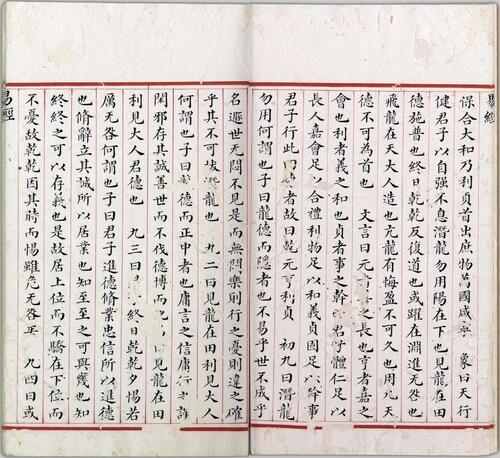 易經
保合大和乃利貞首出庶物萬國咸寧 象曰天行
健君子以自强不息潛龍勿用陽在下也見龍在田
德施普也終日乾乾反復道也或躍在淵進无咎也
飛龍在天大人造也亢龍有悔盈不可久也用九天
德不可為首也 文言曰元之長也亨者嘉之
會也利者義之和也貞者事之幹也君子體仁足以
長人嘉會足以合禮利物足以和義貞固足以幹事
君子行此四者故曰乾元亨利貞 初九曰潛龍
勿用何謂也子曰龍德而隱者也不易乎世不成乎
名遯世无悶不見是而無悶樂則行之憂則違之確
乎其不可拔潛龍也 九二曰見龍在田利見大人
何謂也子曰德而正中者也庸言之信庸行之謹
閑邪存其誠善世而不伐德博而化曰見龍在田
利見大人君德也 九三曰終日乾乾夕惕若
厲无咎何謂也子曰君子進德脩業忠信所以進德
也脩辭立其誠所以居業也知至至之可與幾也知
終終之可以存義也是故居上位而不驕在下位而
不憂故乾乾因其時而惕雖危无咎矣 九四曰或
易經